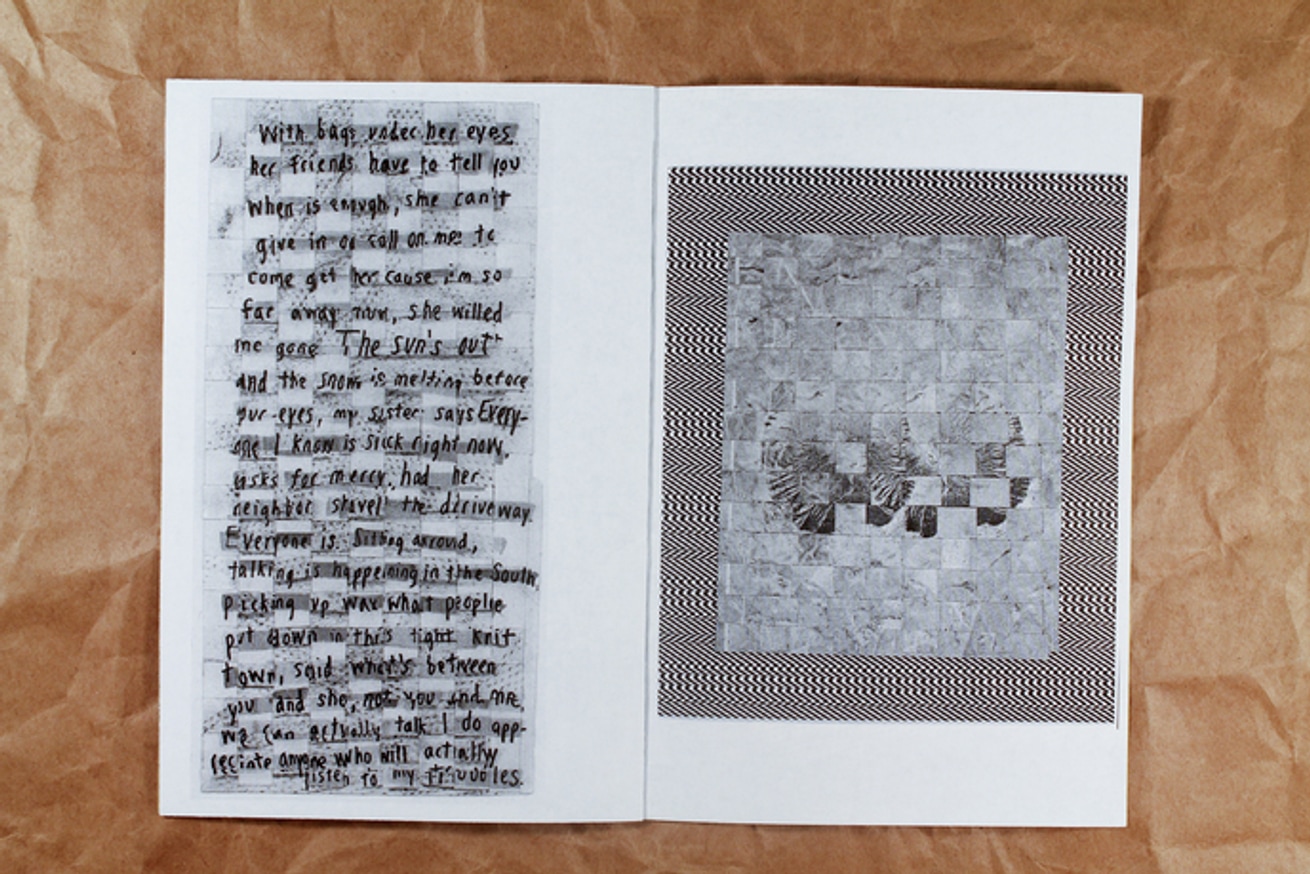 With bags under her eyes
her friends have to tell you
when is enough, she can't
give in or call on me to
come get her cause i'm so
far away now, she willed
me gone "The sun's out"
and the snow is melting before
our eyes, my sister says Every-
one I know is sick right now,
asks for mercy, had her
neighbor shovel the driveway.
Everyone is sitting around,
talking is happeining in the South,
picking up wax what people
put down in this tight knit
town, said what's between
you and she, not you and me,
we can actually talk I do app-
reciate anyone who will actially
listen to my troubles.